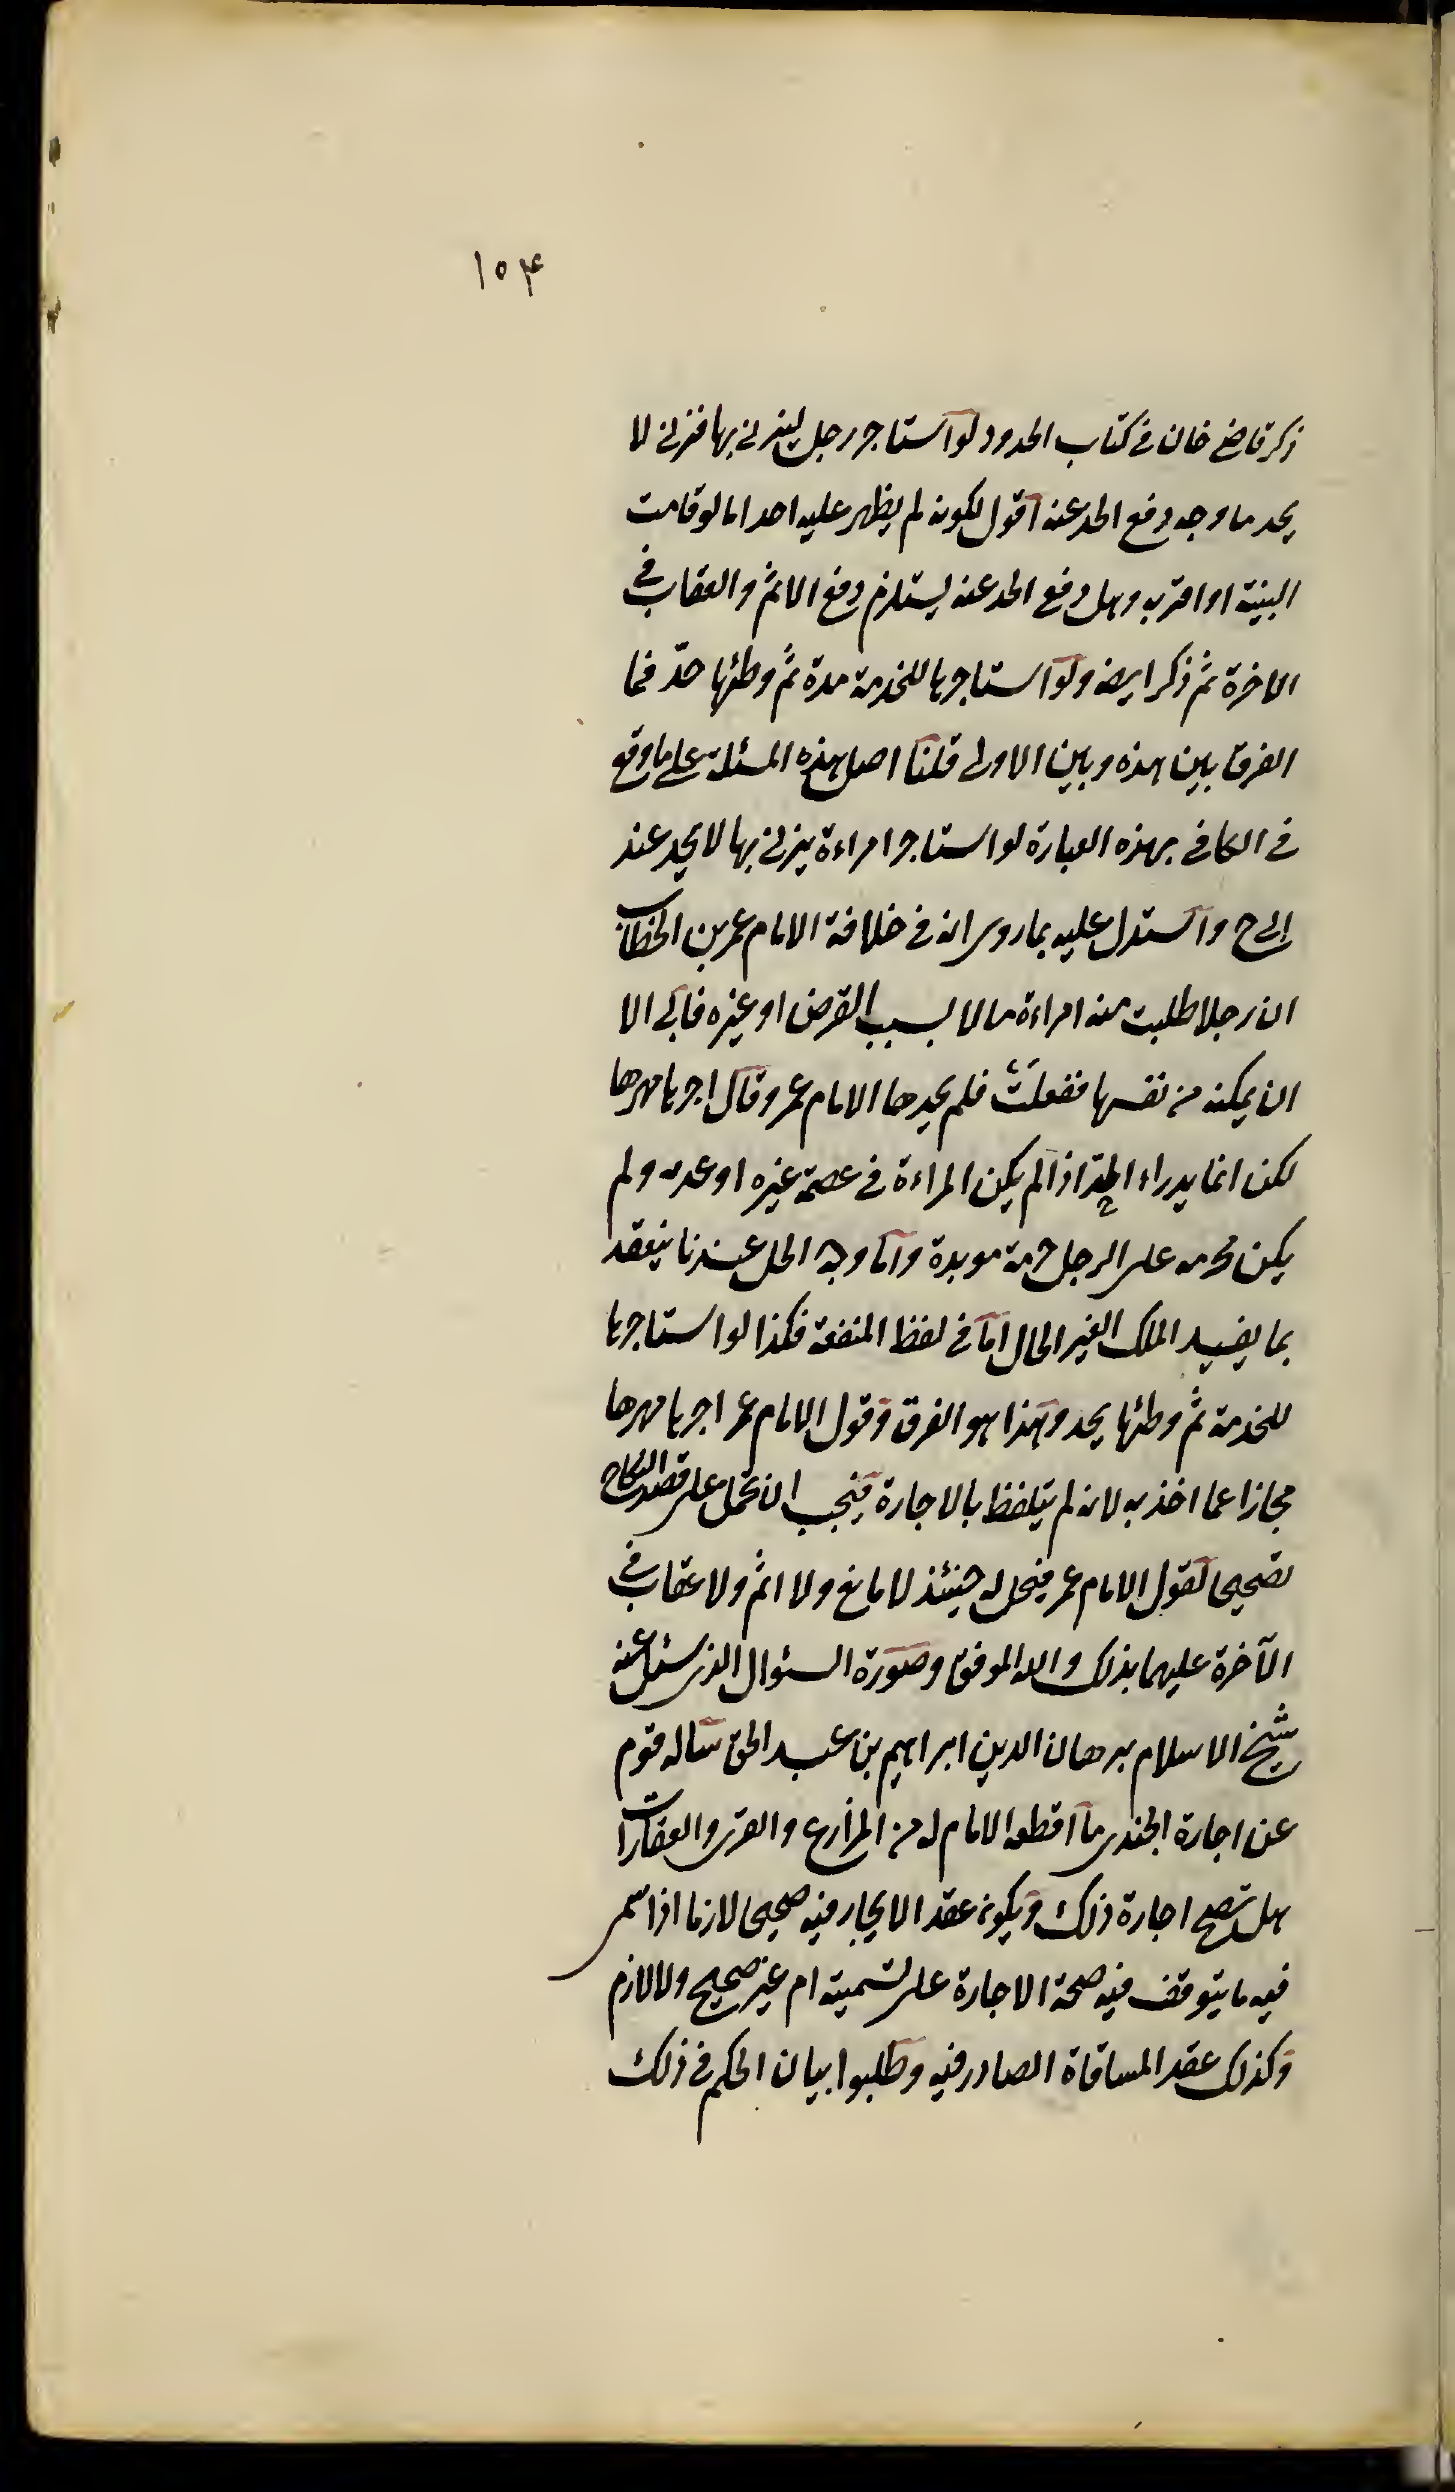 ١٥٤
ذكر قاضي خان في كتاب الحدود لو استاجر رجل ليزني بها فزني لا
يحد ما وجه دفع الحد عنه اقول لكونه لم يظهر عليه احد اما لو قامت
البينة او اقر به وهل دفع الحد عنه يستلزم دفع الاثم والعقاب في
الاخرة ثم ذكر ايضه ولو استاجرها للخدمة مدة ثم وطئها حدّ فما
الفرق بين هذه وبين الاولى قلنا اصل هذه المسئلة على ما وقع
في الكافي بهذه العبارة لو استاجر امراءة يزني بها لا يحد عند
ابي ح واستدل عليه بما روى انه في خلافة الامام عمر بن الخطاب
ان رجلا طلبت منه امراءة مالا بسبب القرض او غيره فابى الا
ان يمكنه من نفسها ففعلت فلم يحدها الامام عمر وقال اجرها مهرها
لكن انما يدراء الحد اذا لم يكن المراءة في عصمة غيره او عدته ولم
يكن محرمه على الرجل حرمة موبدة واما وجه الحل عندنا ينعقد
بما يفيد الملك الغير الحال اما في لفظ المنفعة فكذا لو استاجرها
للخدمة ثم وطئها يحد وهذا هو الفرق وقول الامام عمر اجرها مهرها
مجازا عما اخذ به لانه لم يتلفظ بالاجارة فيجب ان يحمل على قصد النكاح
تصحيحا لقول الامام عمر فيحل له حينئذ لا مانع ولا اثم ولا عقاب في
الآخرة عليهما بذلك والله الموفق وصورة السئوال الذى سئل عنه
شيخ الاسلام برهان الدين ابراهيم بن عبد الحق ساله قوم
عن اجارة الجندى ما اقطعه الامام له من المزارع والقرى والعقارات
هل تصح اجارة ذلك ويكون عقد الايجار فيه صحيحا لازما اذا سمى
فيه ما يتوقف فيه صحة الاجارة على تسميته ام غير صحيح ولا لازم
وكذلك عقد المساقاة الصادر فيه وطلبوا بيان الحكم في ذلك